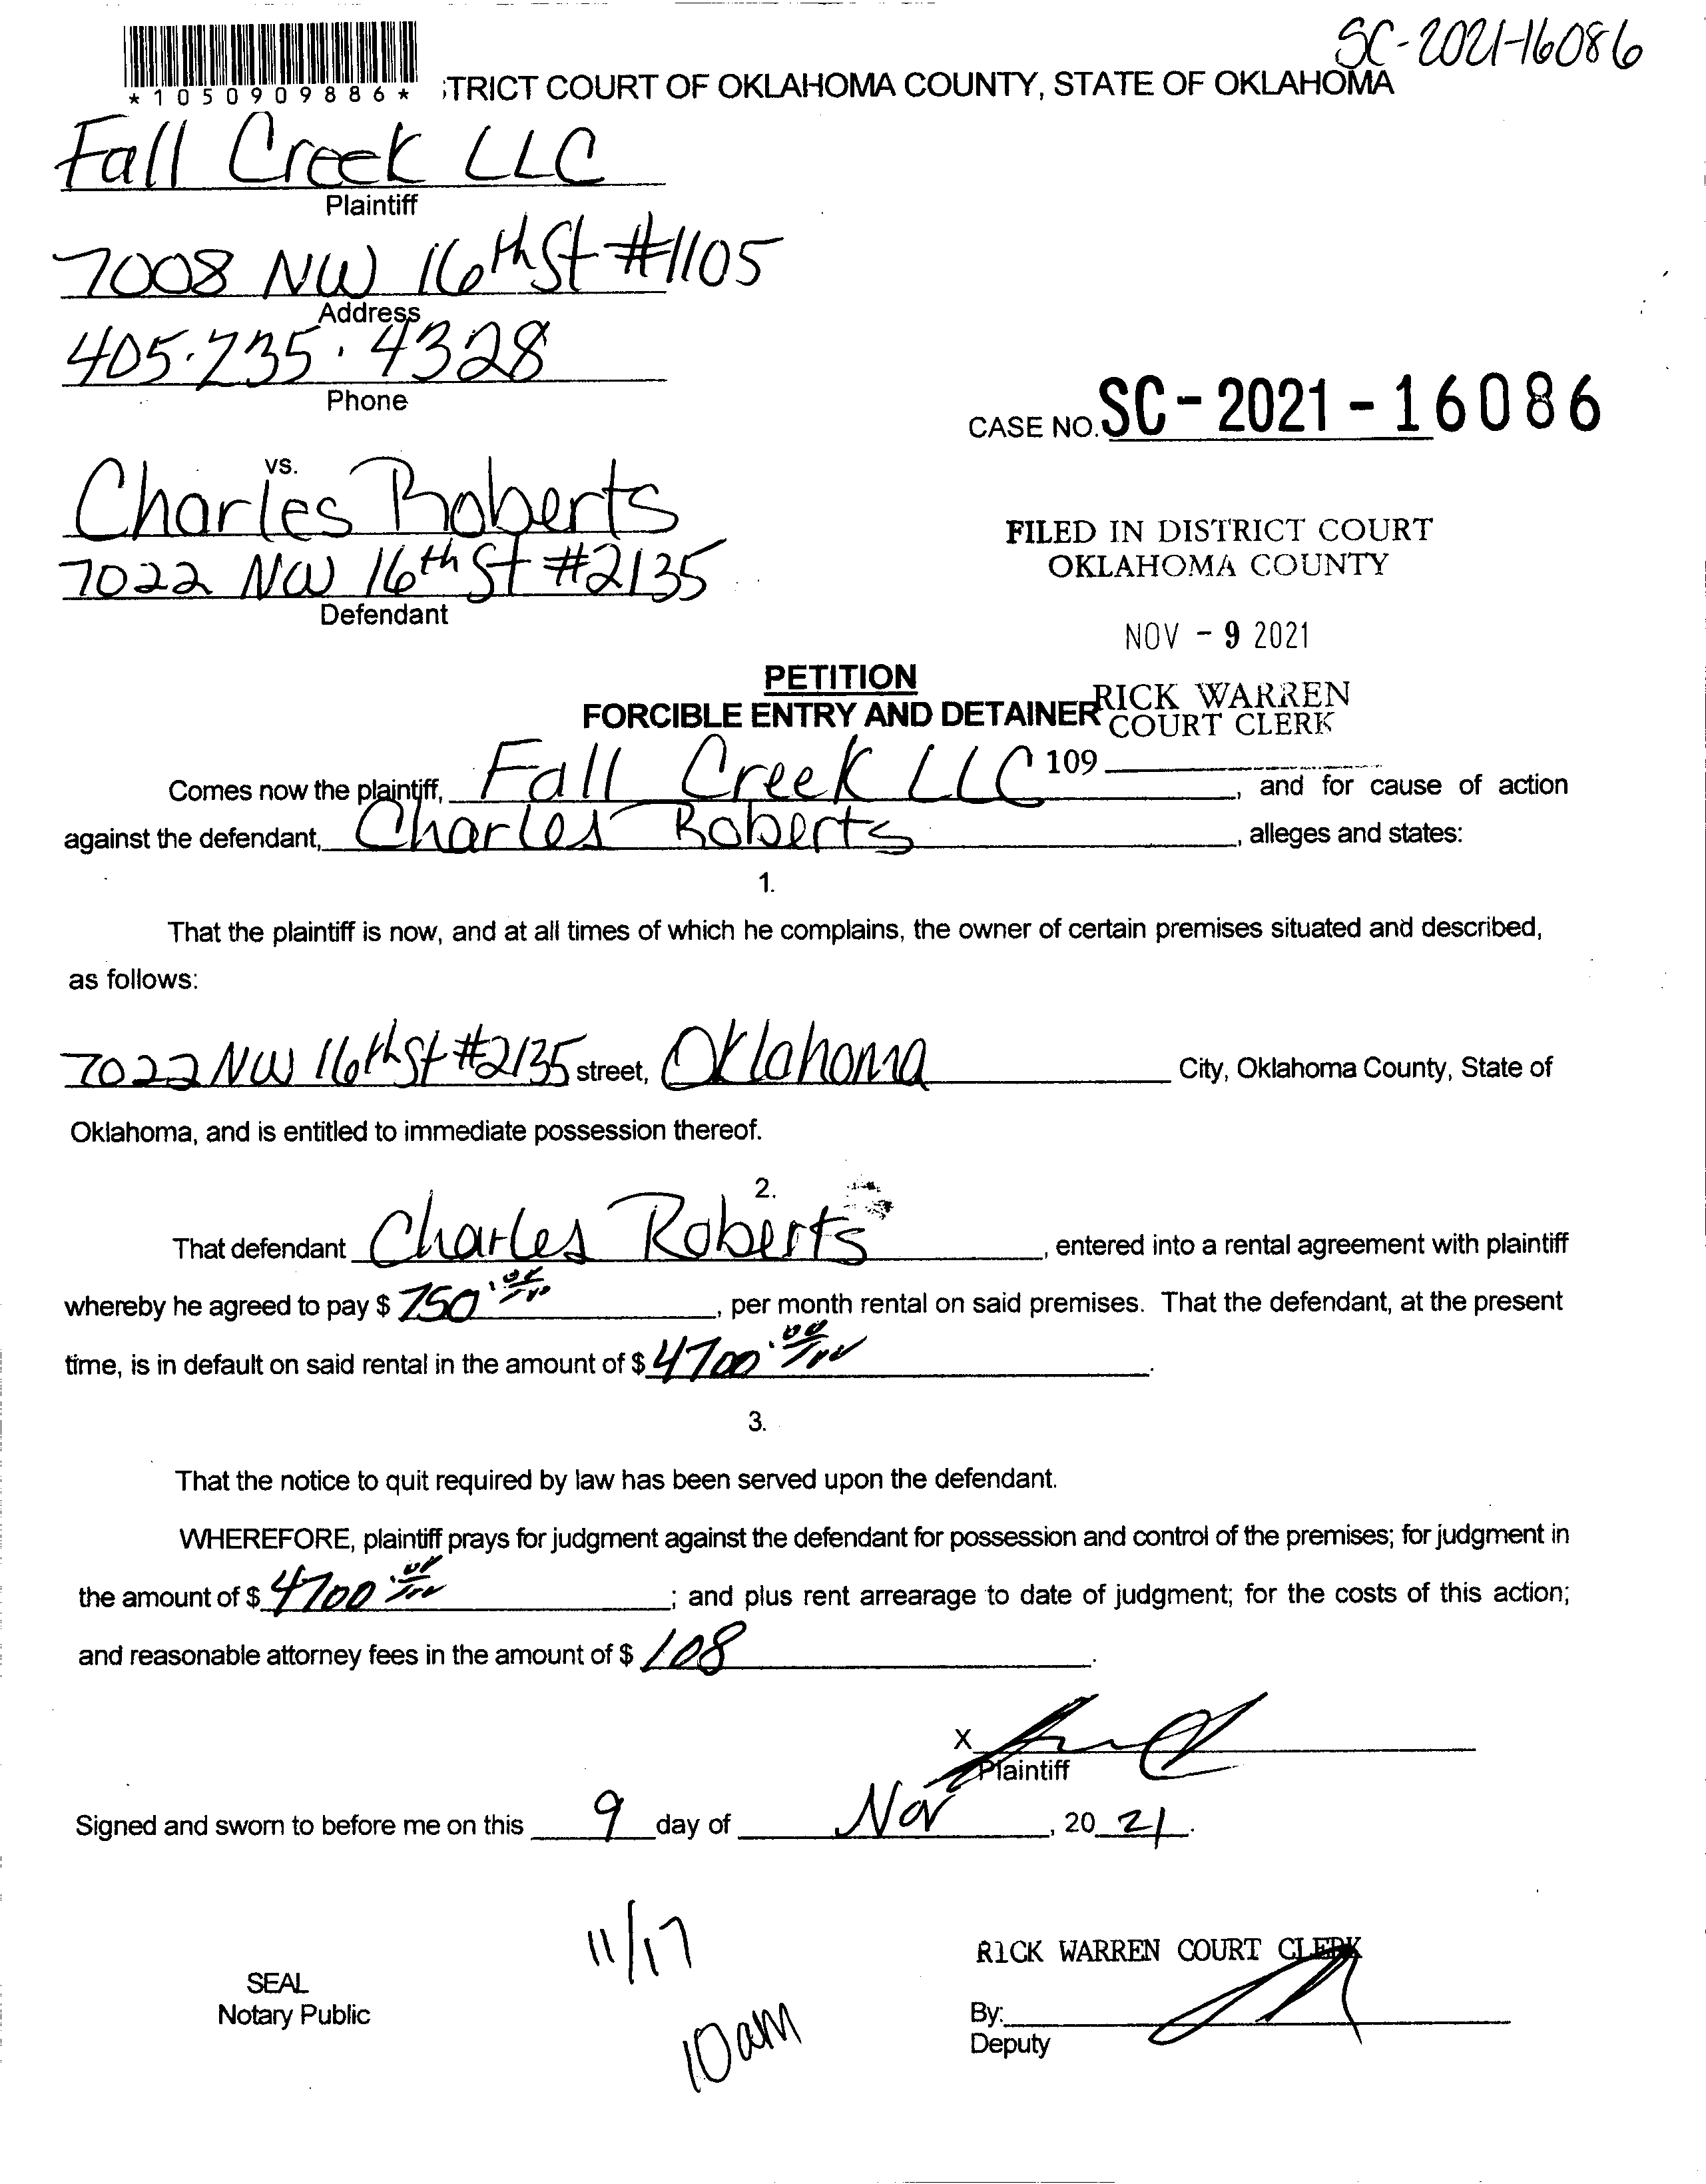 SC-2021-16086
*1050909886*
TRICT COURT OF OKLAHOMA COUNTY, STATE OF OKLAHOMA
Fall Creek LLC
Plaintiff
7008 NW 16th St #1105
Address
405.735.4328
Phone
CASE NO. SC-2021-16086
vs.
Charles Roberts
7022 NW 16th St #2135
Defendant
FILED IN DISTRICT COURT
OKLAHOMA COUNTY
NOV - 9 2021
RICK WARREN
COURT CLERK
109
PETITION
FORCIBLE ENTRY AND DETAINER
Comes now the plaintiff, Fall Creek LLC, and for cause of action
against the defendant, Charles Roberts, alleges and states:
1.
That the plaintiff is now, and at all times of which he complains, the owner of certain premises situated and described,
as follows:
7022 NW 16th St #2135 street, Oklahoma City, Oklahoma County, State of
Oklahoma, and is entitled to immediate possession thereof.
2.
That defendant Charles Roberts, entered into a rental agreement with plaintiff
whereby he agreed to pay $ 750.00/100, per month rental on said premises. That the defendant, at the present
time, is in default on said rental in the amount of $ 4700.00/100.
3.
That the notice to quit required by law has been served upon the defendant.
WHEREFORE, plaintiff prays for judgment against the defendant for possession and control of the premises; for judgment in
the amount of $ 4700.00/100; and plus rent arrearage to date of judgment; for the costs of this action;
and reasonable attorney fees in the amount of $ 108.
X
Plaintiff
Signed and sworn to before me on this 9 day of Nov, 20 21.
11/17
10am
SEAL
Notary Public
RICK WARREN COURT CLERK
By:
Deputy